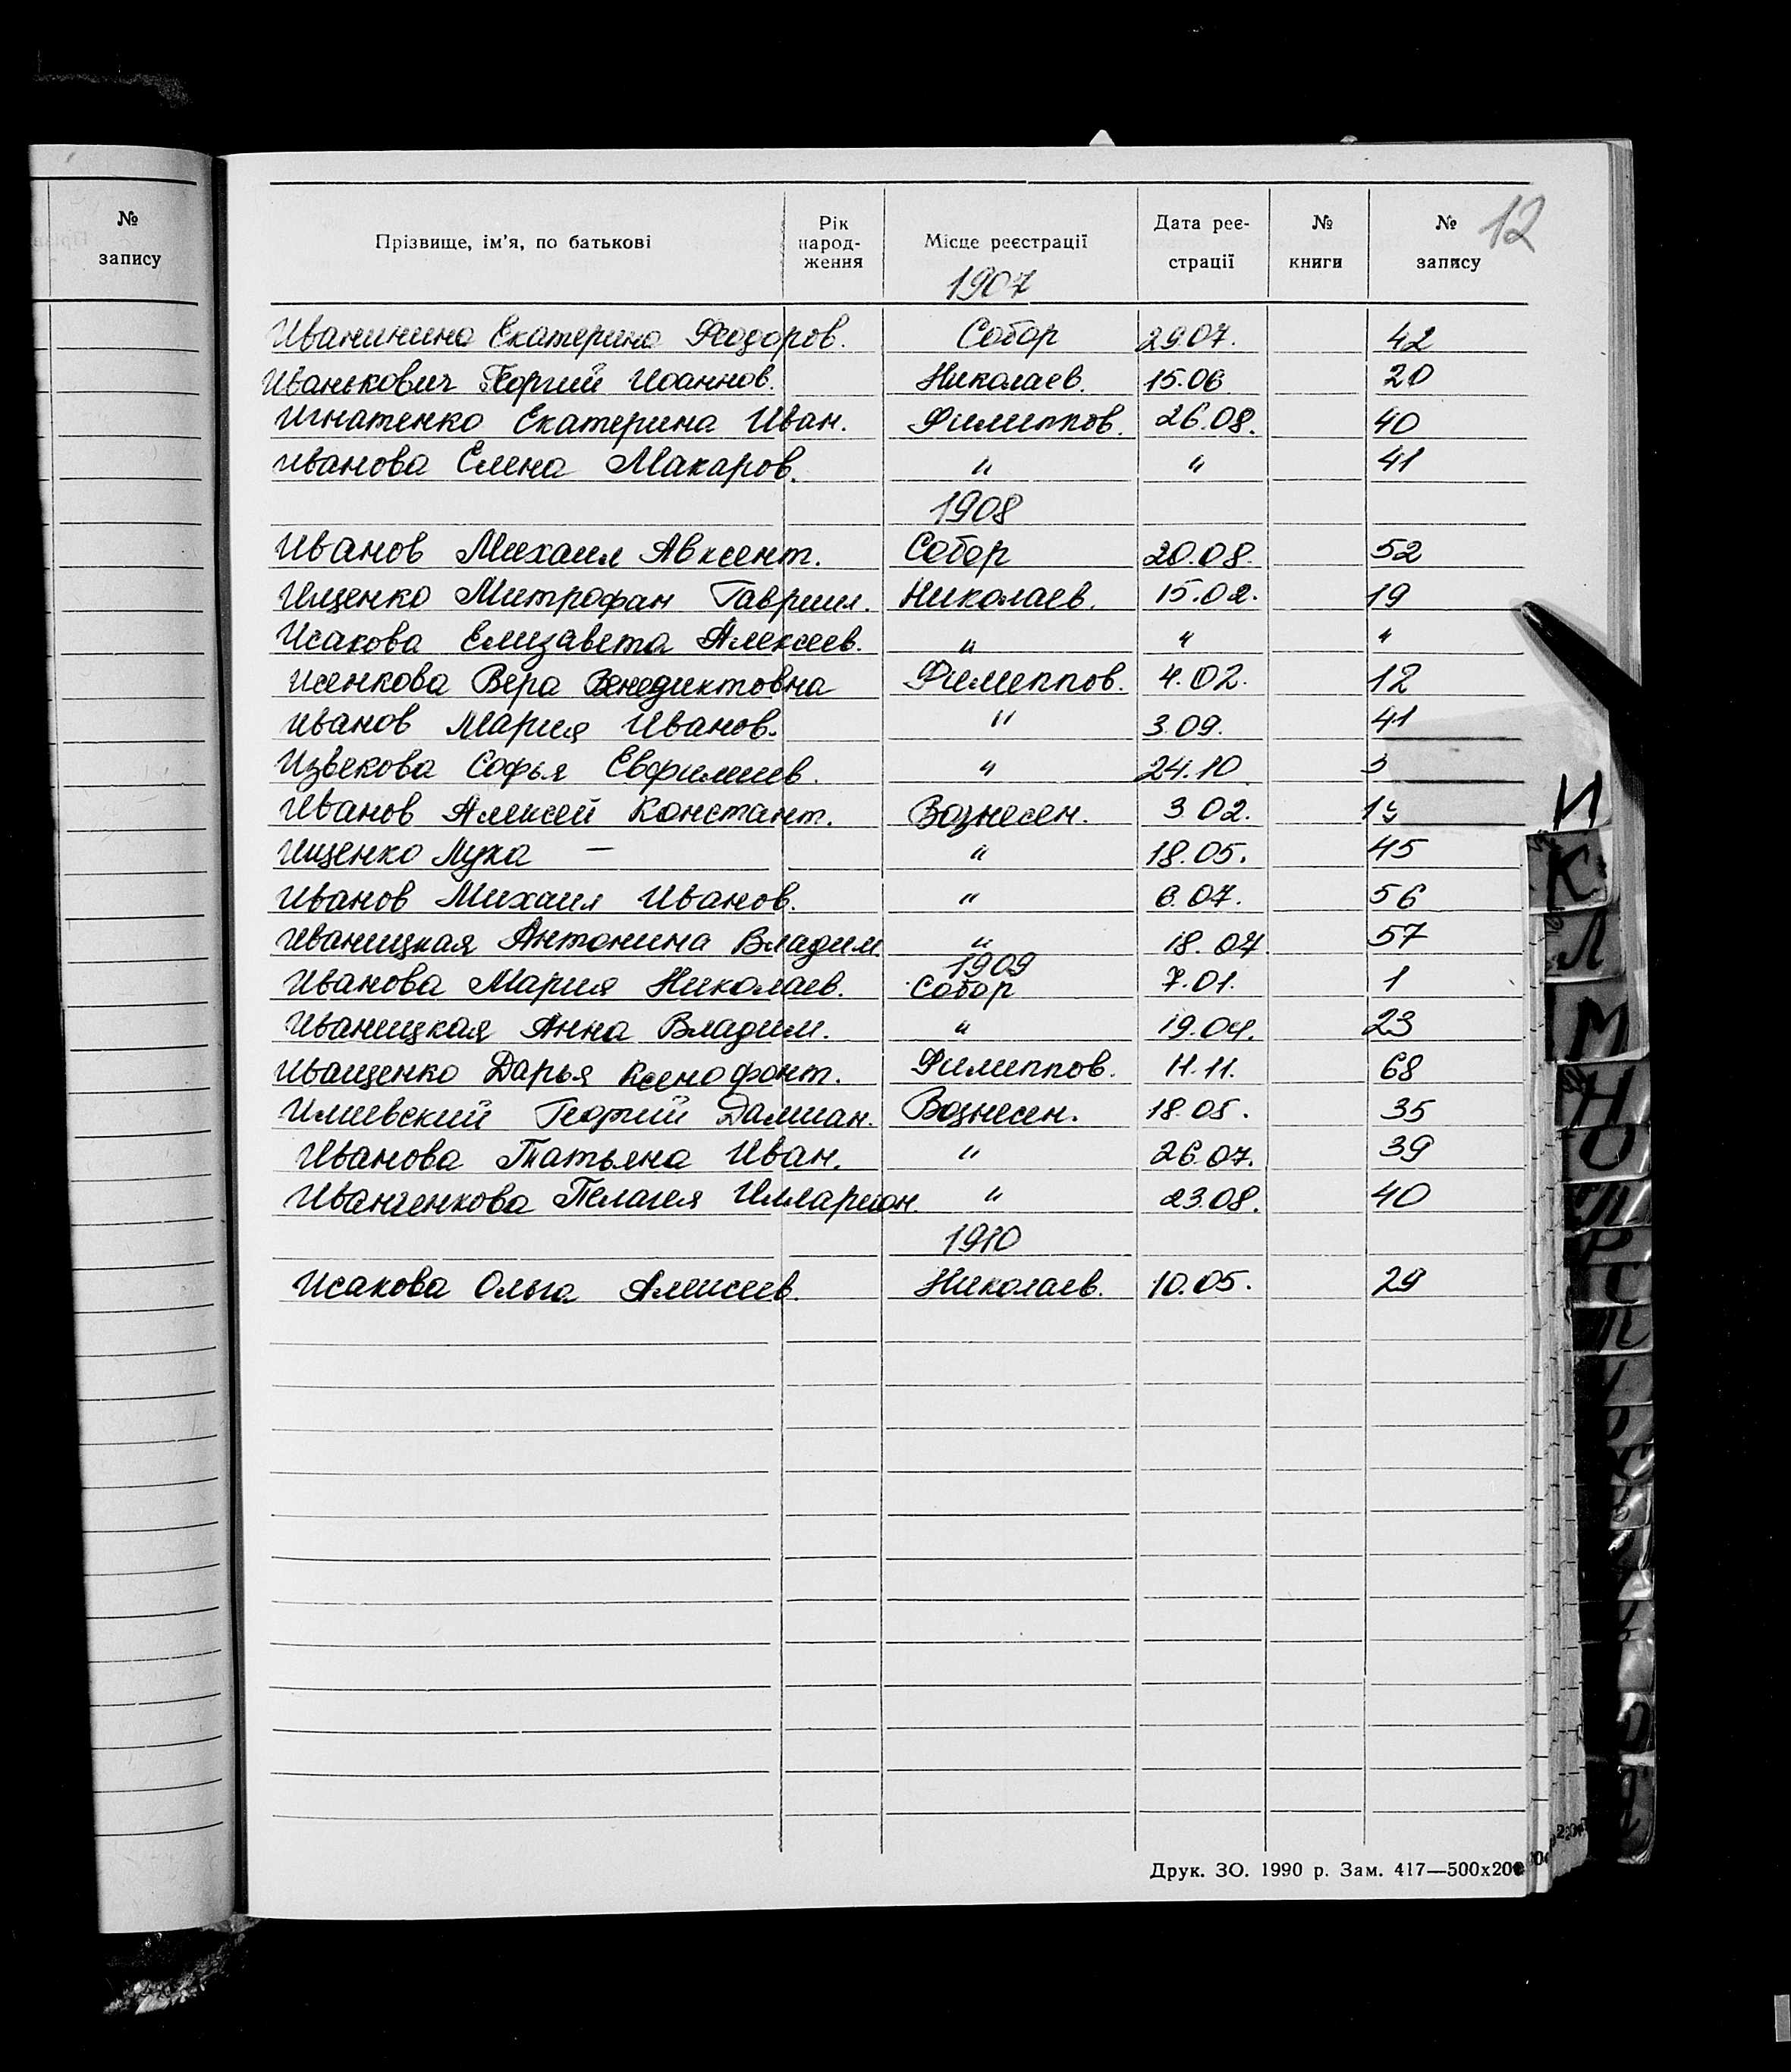 №
запису
Прізвище, ім'я, по батькові Рік народ-ження Місце реєстрації Дата реє-страції № книги № запису 12
1907
Иванинина Екатерина Феодоров. Собор 29.07. 42
Иванькович Георгий Иоаннов. Николаев. 15.06 20
Игнатенко Екатерина Иван. Филиппов. 26.08. 40
Иванова Елена Макаров. " " 41
1908
Иванов Михаил Авксент. Собор 20.08. 52
Ищенко Митрофан Гавриил. Николаев. 15.02. 19
Исакова Елизавета Алексеев. " " "
Исенкова Вера Венедиктовна Филиппов. 4.02. 12
Иванов Мария Иванов. " 3.09. 41
Извекова Софья Евфимиев. " 24.10
Иванов Алексей Констант. Вознесен. 3 02.
Ищенко Лука — " 18.05. 45
Иванов Михаил Иванов. " 6.07. 56
Иваницкая Антонина Владим. " 18.07. 57
1909
Иванова Мария Николаев. Собор 7.01. 1
Иваницкая Анна Владим. " 19.04. 23
Иващенко Дарья Ксенофонт. Филиппов. 11.11. 68
Илиевский Георгий Дамиан. Вознесен. 18.05. 35
Иванова Татьяна Иван. " 26.07. 39
Иванченкова Пелагея Илларион. " 23.08. 40
1910
Исакова Ольга Алексеев. Николаев. 10.05. 29
И
К
Л
М
Н
О
П
Р
С
Друк. ЗО. 1990 р. Зам. 417—500х200